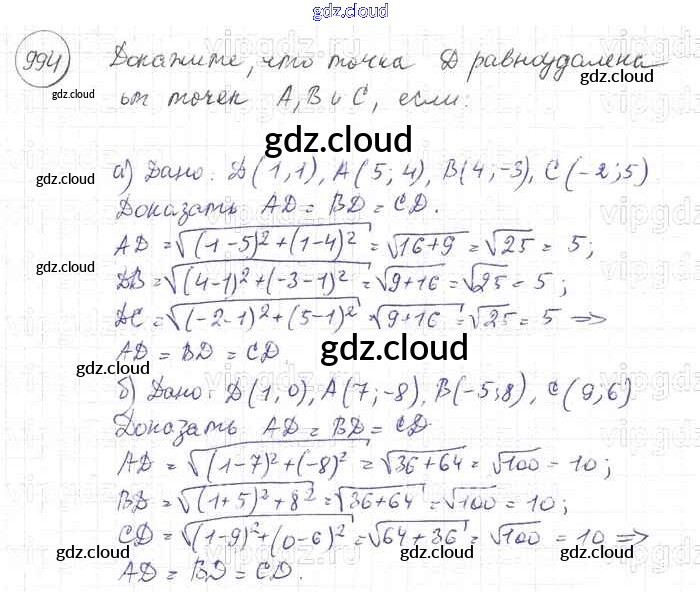 gdz.cloud
994 Докажите, что точка D равноудалена
gdz.cloud gdz.cloud
от точек A, B и C, если:
gdz.cloud
а) Дано: D(1;1), A(5;4), B(4;-3), C(-2;5)
gdz.cloud gdz.cloud
Доказать AD = BD = CD.
AD = √((1-5)²+(1-4)²) = √(16+9) = √25 = 5;
gdz.cloud
DB = √((4-1)²+(-3-1)²) = √(9+16) = √25 = 5;
DC = √((-2-1)²+(5-1)²) = √(9+16) = √25 = 5 =>
AD = BD = CD. gdz.cloud
б) Дано: D(1,0), A(7;-8), B(-5;8), C(9;6)
gdz.cloud gdz.cloud
Доказать AD = BD = CD
AD = √((1-7)²+(-8)²) = √(36+64) = √100 = 10;
BD = √((1+5)²+8²) = √(36+64) = √100 = 10;
CD = √((1-9)²+(0-6)²) = √(64+36) = √100 = 10 =>
gdz.cloud gdz.cloud gdz.cloud
AD = BD = CD.